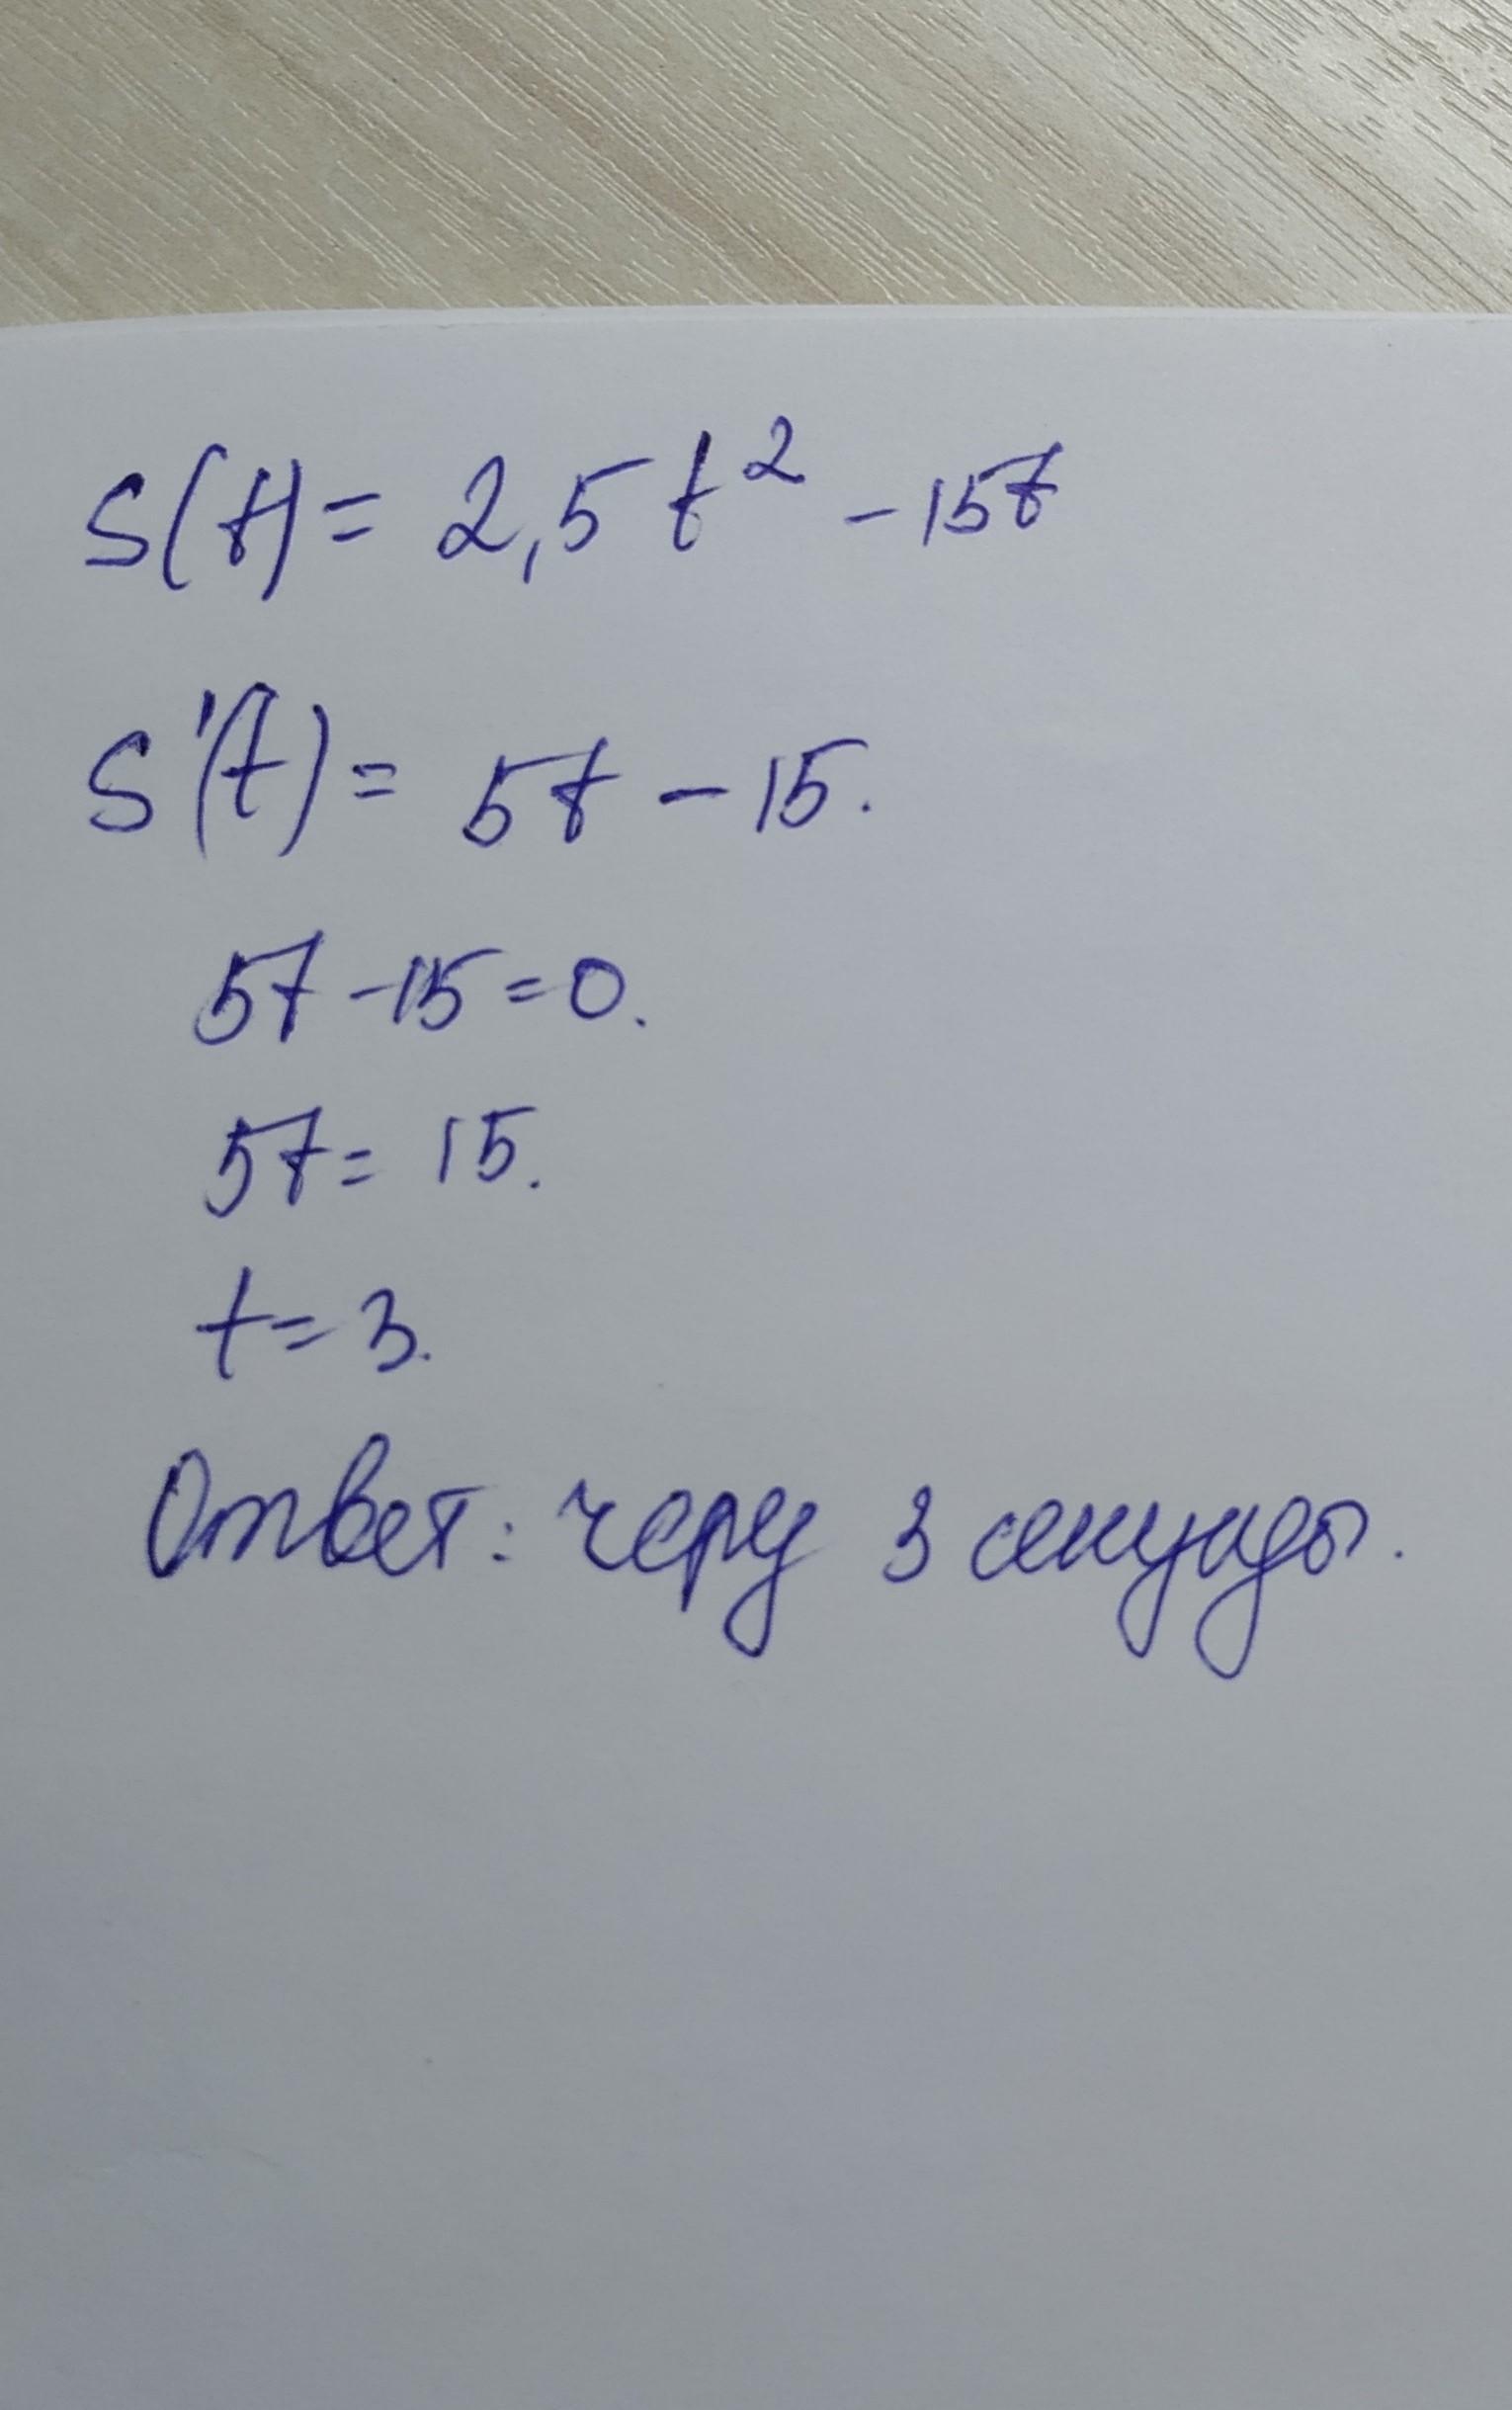 S(t) = 2,5 t² - 15t
S'(t) = 5t - 15.
5t - 15 = 0.
5t = 15.
t = 3.
Ответ: через 3 секунды.